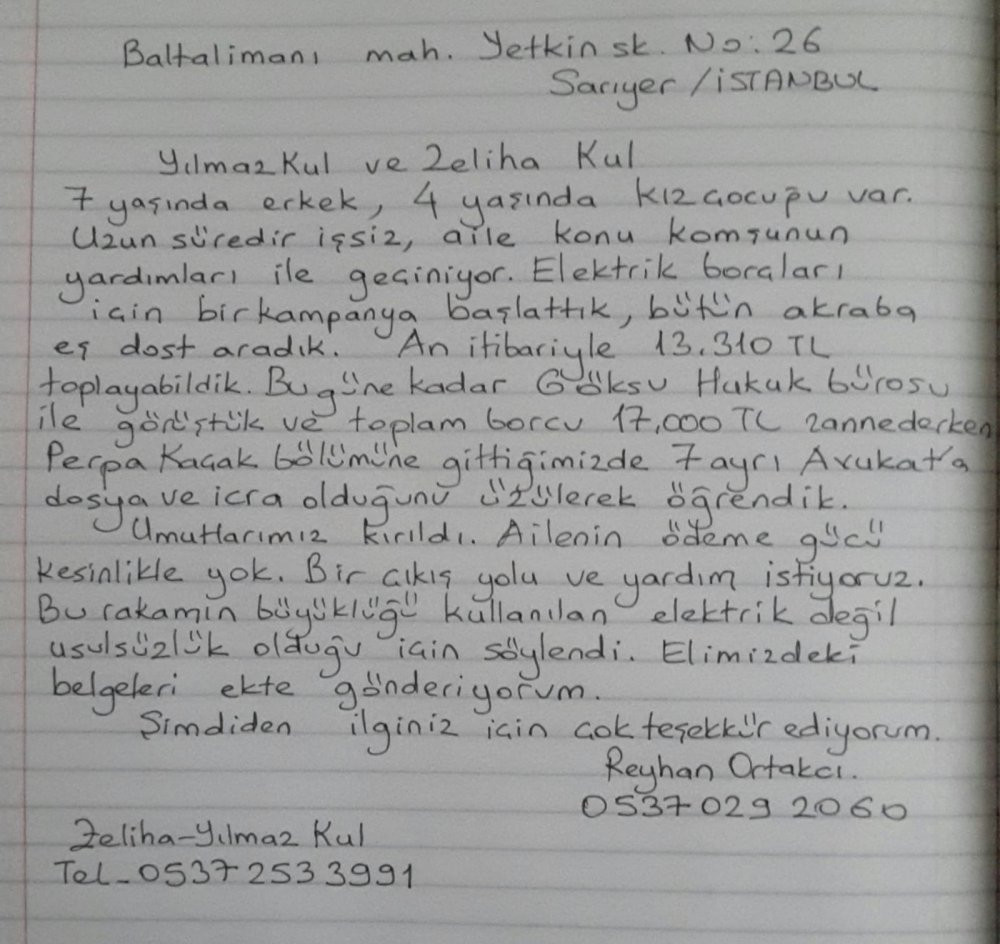 Baltalimanı mah. Yetkin sk. No: 26
Sarıyer / İSTANBUL
Yılmaz Kul ve Zeliha Kul
7 yaşında erkek, 4 yaşında kız çocuğu var.
Uzun süredir işsiz, aile konu komşunun
yardımları ile geçiniyor. Elektrik borçları
için bir kampanya başlattık, bütün akraba
eş dost aradık. An itibariyle 13.310 TL
toplayabildik. Bugüne kadar Göksu Hukuk bürosu
ile görüştük ve toplam borcu 17,000 TL zannederken
Perpa Kaçak bölümüne gittiğimizde 7 ayrı Avukata
dosya ve icra olduğunu üzülerek öğrendik.
Umutlarımız kırıldı. Ailenin ödeme gücü
kesinlikle yok. Bir çıkış yolu ve yardım istiyoruz.
Bu rakamın büyüklüğü kullanılan elektrik değil
usulsüzlük olduğu için söylendi. Elimizdeki
belgeleri ekte gönderiyorum.
Şimdiden ilginiz için çok teşekkür ediyorum.
Reyhan Ortakcı.
0537 029 2060
Zeliha-Yılmaz Kul
Tel_0537 253 3991